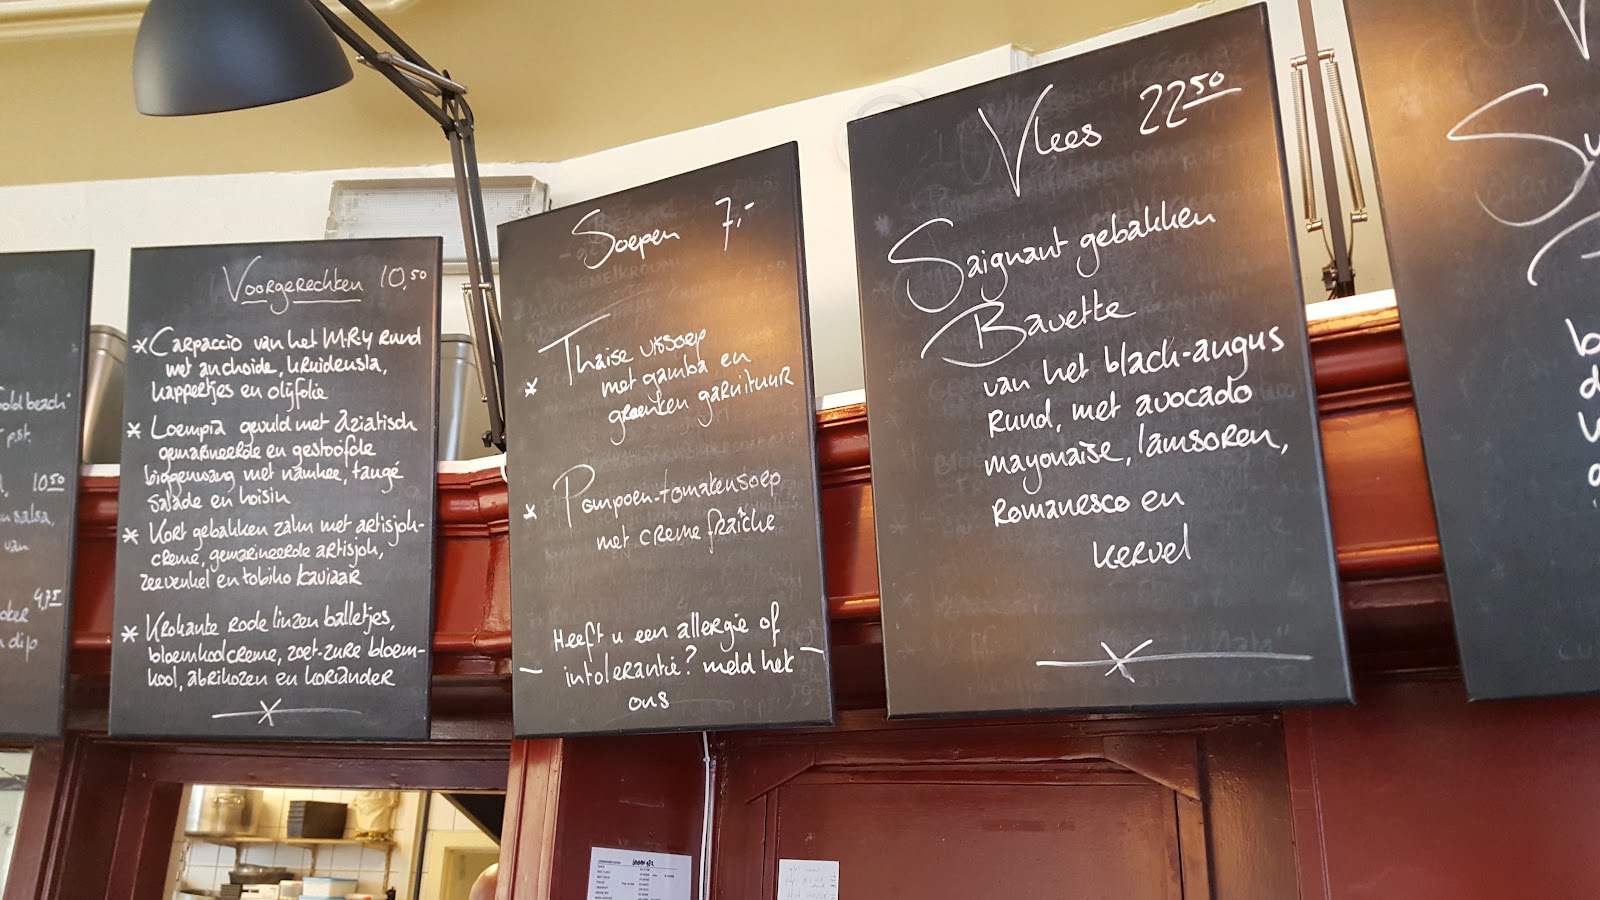 old beach"
p.st.
10.50
salsa,
van
4,75
dip
Voorgerechten 10,50
* Carpaccio van het M.R.Y rund
met anchoïde, kruidensla,
kappertjes en olijfolie
* Loempia gevuld met Aziatisch
gemarineerde en gestoofde
biggenwang met namkee, taugé
salade en hoisin
* Kort gebakken zalm met artisjok-
creme, gemarineerde artisjok,
zeevenkel en tobiko kaviaar
* Krokante rode linzen balletjes,
bloemkoolcreme, zoet-zure bloem-
kool, abrikozen en koriander
Soepen 7,-
* Thaise vissoep
met gamba en
groenten garnituur
* Pompoen-tomatensoep
met creme fraîche
Heeft u een allergie of
- intolerantie? meld het -
ons
Vlees 22 50
Saignant gebakken
Bavette
van het black-angus
rund, met avocado
mayonaise, lamsoren,
Romanesco en
kervel